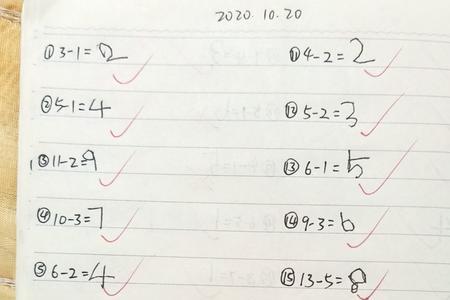 2020.10.20
①3-1=2
②5-1=4
③11-2=9
④10-3=7
⑤6-2=4
⑪4-2=2
⑫5-2=3
⑬6-1=5
⑭9-3=6
⑮13-5=8